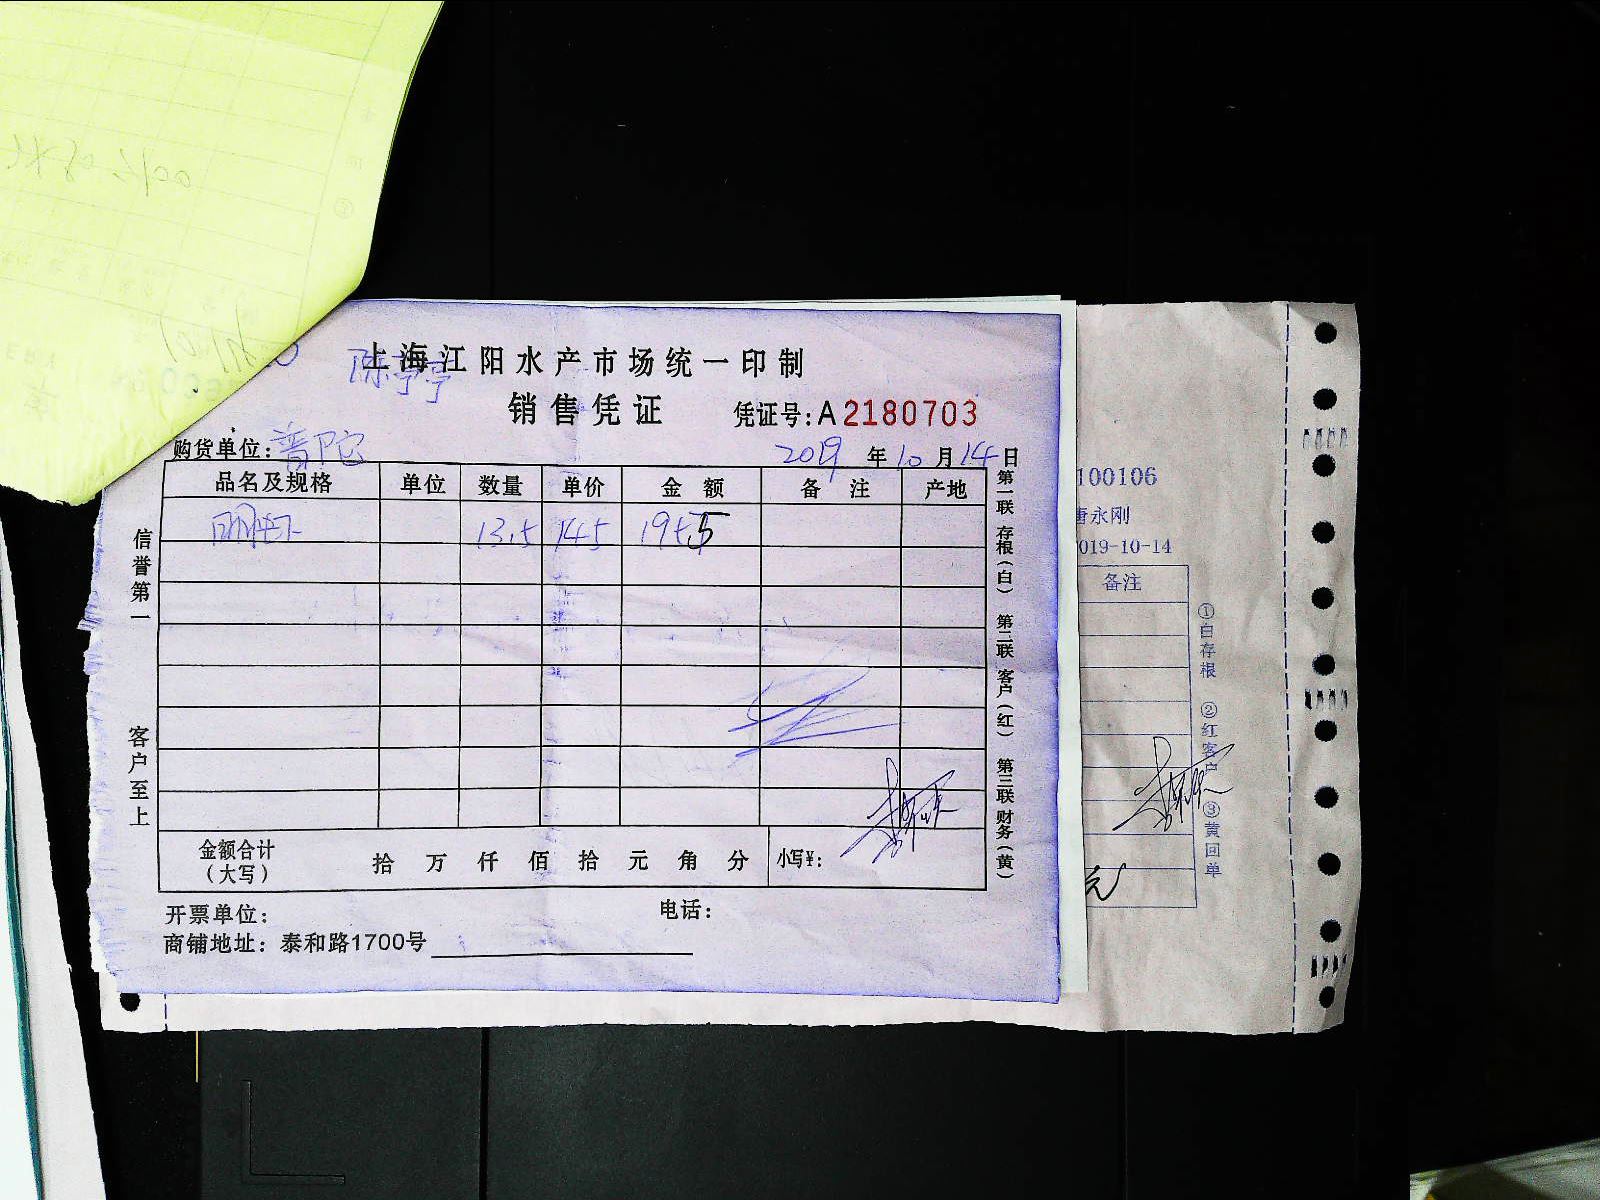 上海江阳水产市场统一印制
陈亭亭
销售凭证 凭证号:A2180703
购货单位:普陀 2019年10月14日
品名及规格 单位 数量 单价 金额 备注 产地
明虾 13.5 145
信誉第一 客户至上
第一联 存根(白) 第二联 客户(红) 第三联 财务(黄)
金额合计(大写) 拾 万 仟 佰 拾 元 角 分 小写¥:
开票单位: 电话:
商铺地址:泰和路1700号
100106
唐永刚
019-10-14
备注
①白存根 ②红客户 ③黄回单
元